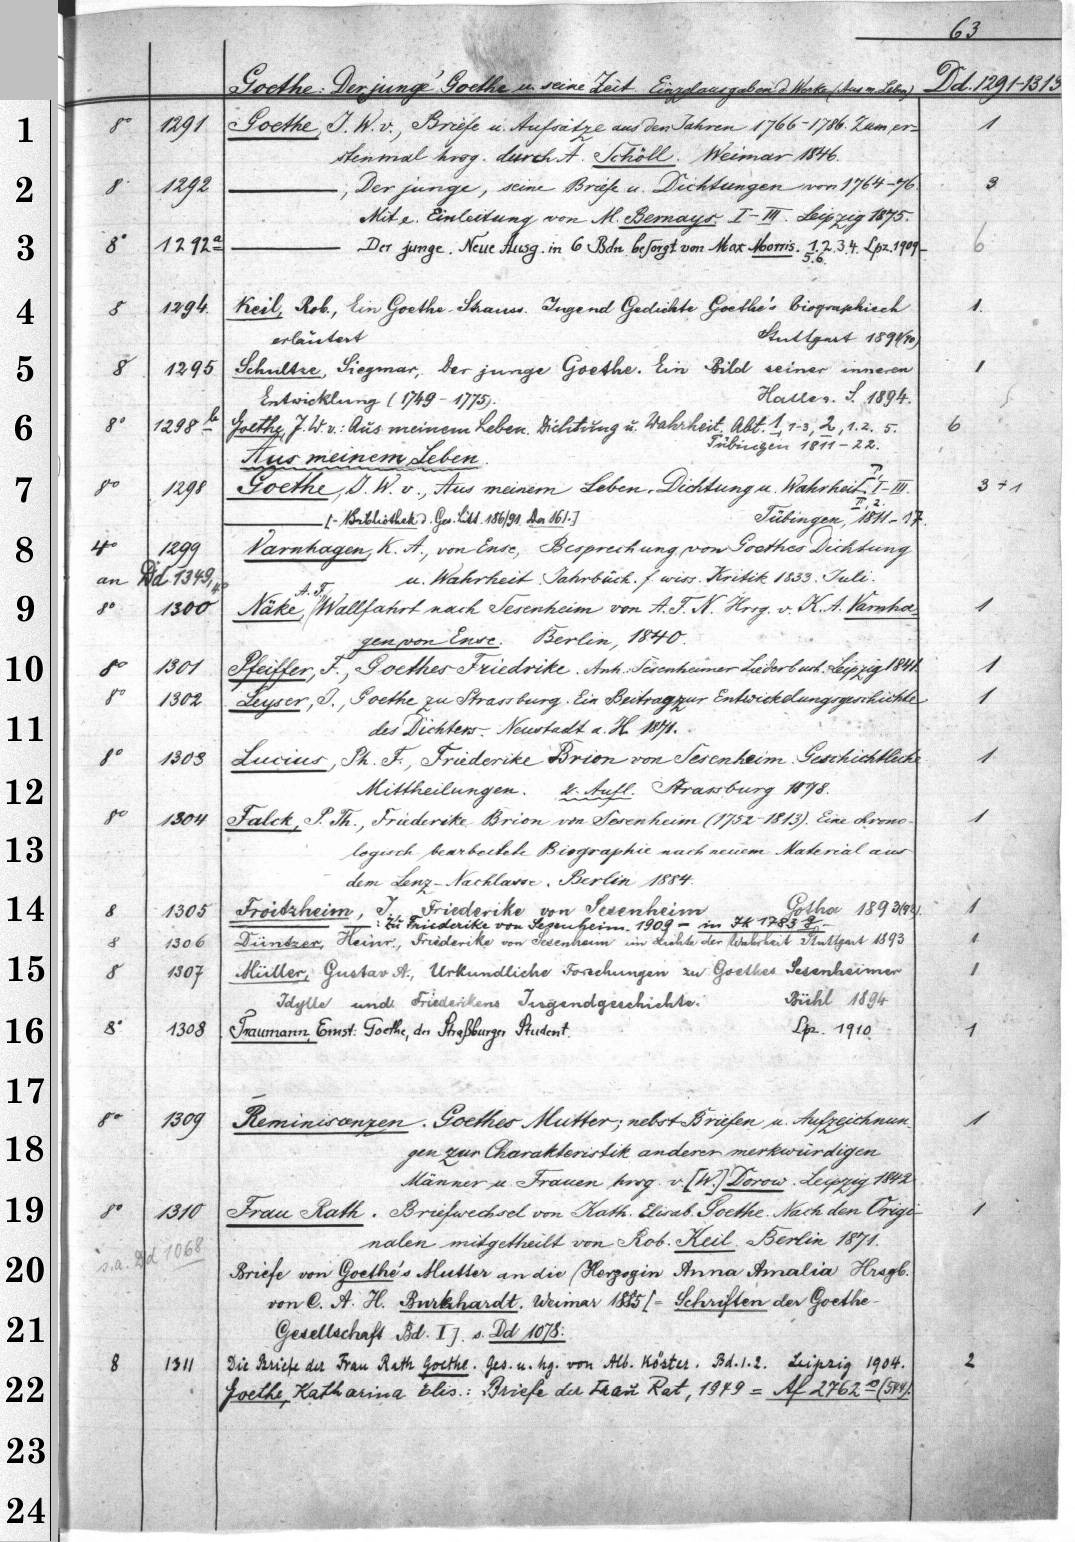 63
Goethe: Der junge Goethe u. seine Zeit. Einzelausgaben d. Werke (Aus m. Leben) Dd. 1291-1313
1 8° 1291 Goethe, J. W. v., Briefe u. Aufsätze aus den Jahren 1766-1786. Zum er= 1
stenmal hrsg. durch A. Schöll. Weimar 1846.
2 8° 1292 ———, Der junge, seine Briefe u. Dichtungen von 1764-76. 3
Mit e. Einleitung von M. Bernays. I-III. Leipzig 1875.
3 8° 1292a ——— Der junge. Neue Ausg. in 6 Bdn. besorgt von Max Morris. 1.2.3.4. Lpz. 1909- 6
5.6.
4 8 1294. Keil, Rob., Ein Goethe-Strauss. Jugend Gedichte Goethe's biographisch 1.
erläutert Stuttgart 1891(90)
5 8 1295 Schultze, Siegmar, Der junge Goethe. Ein Bild seiner inneren 1
Entwicklung (1749-1775). Halle a. S. 1894.
6 8° 1298b Goethe, J. W v.: Aus meinem Leben. Dichtung u. Wahrheit. Abt. 1, 1-3, 2, 1.2. 5. 6
Tübingen 1811-22.
Aus meinem Leben.
7 8° 1298 Goethe, J. W. v., Aus meinem Leben. Dichtung u. Wahrheit. I, I-III. 3+1
II, 2.
[- Bibliothek d. Ges. Litt. 186/91. Da 161.] Tübingen, 1811-17.
8 4° 1299 Varnhagen, K. A., von Ense, Besprechung von Goethes Dichtung
an Dd 1349, 4° u. Wahrheit. Jahrbüch. f. wiss. Kritik 1833. Juli.
A. F.
9 8° 1300 Näke, Wallfahrt nach Sesenheim von A. F. N. Hrsg. v. K. A. Varnha= 1
gen von Ense. Berlin, 1840.
10 8° 1301 Pfeiffer, F., Goethes Friedrike. Anh. Sesenheimer Liederbuch. Leipzig 1841. 1
8° 1302 Leyser, J., Goethe zu Strassburg. Ein Beitrag zur Entwickelungsgeschichte 1
11 des Dichters. Neustadt a. H. 1871.
8° 1303 Lucius, Ph. F., Friederike Brion von Sesenheim. Geschichtliche 1
12 Mittheilungen. 2. Aufl. Strassburg 1878.
8° 1304 Falck, P. Th., Friederike Brion von Sesenheim (1752-1813). Eine chrono- 1
13 logisch bearbeitete Biographie nach neuem Material aus
dem Lenz-Nachlasse. Berlin 1884.
14 8 1305 Froitzheim, J., Friederike von Sesenheim Gotha 1893(92). 1
——— : Zu Friederike von Sesenheim. 1909 = in Zk 1783 g.
8 1306 Düntzer, Heinr., Friederike von Sesenheim im Lichte der Wahrheit Stuttgart 1893 1
15 8 1307 Müller, Gustav A., Urkundliche Forschungen zu Goethes Sesenheimer 1
Idylle und Friederikens Jugendgeschichte. Bühl 1894
16 8° 1308 Traumann, Ernst: Goethe, der Straßburger Student. Lpz. 1910. 1
17
8° 1309 Reminiscenzen. Goethes Mutter; nebst Briefen u. Aufzeichnun- 1
18 gen zur Charakteristik anderer merkwürdigen
Männer u. Frauen hrsg. v. [W.] Dorow. Leipzig 1842
19 8° 1310 Frau Rath. Briefwechsel von Kath. Elisab. Goethe. Nach den Origi- 1
nalen mitgetheilt von Rob. Keil. Berlin 1871.
s. a. Dd 1068
20 Briefe von Goethe's Mutter an die Herzogin Anna Amalia Hrsgb.
von C. A. H. Burkhardt. Weimar 1885 [= Schriften der Goethe-
21 Gesellschaft Bd. I]. s. Dd 1078.
8 1311 Die Briefe der Frau Rath Goethe. Ges. u. hg. von Alb. Köster. Bd. 1.2. Leipzig 1904. 2
22 Goethe, Katharina Elis.: Briefe der Frau Rat, 1949 = Af 2762 (544).
23
24